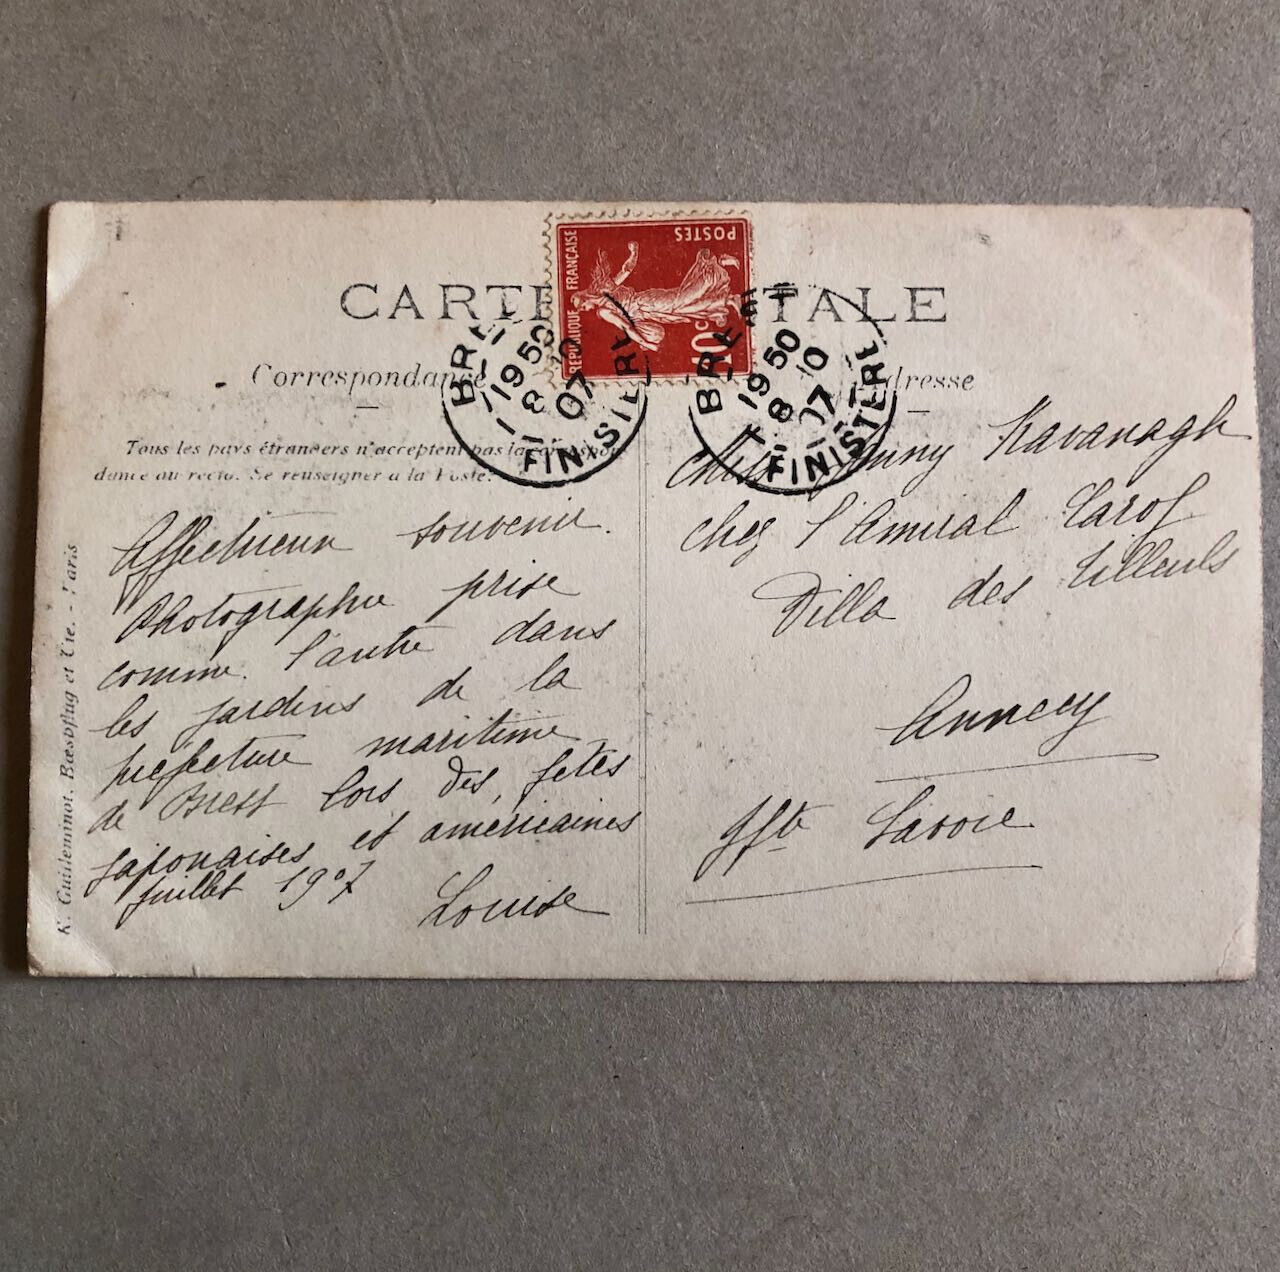 CARTE POSTALE
RÉPUBLIQUE FRANÇAISE
POSTES
10c
BREST
19 50
8 10
07
FINISTERE
BREST
19 50
8 10
07
FINISTERE
Correspondance
Tous les pays étrangers n'acceptent pas la correspon-
dance au recto. Se renseigner à la Poste.
Affectueux souvenir.
Photographie prise
comme l'autre dans
les jardins de la
préfecture maritime
de Brest lors des fêtes
japonaises et américaines
juillet 1907
Louise
K. Guilleminot, Bœspflug et Cie. - Paris
Adresse
Miss Jenny Kavanagh
chez l'Amiral
Villa des tilleuls
Annecy
Hte Savoie